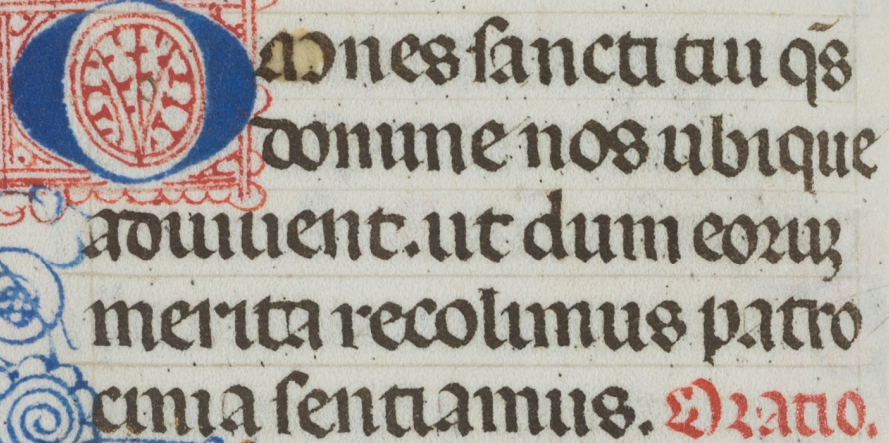 Omnes sancti tui q̄s
domine nos ubique
adiuuent. ut dum eoruꝫ
merita recolimus patro
cinia sentiamus. Oratio.